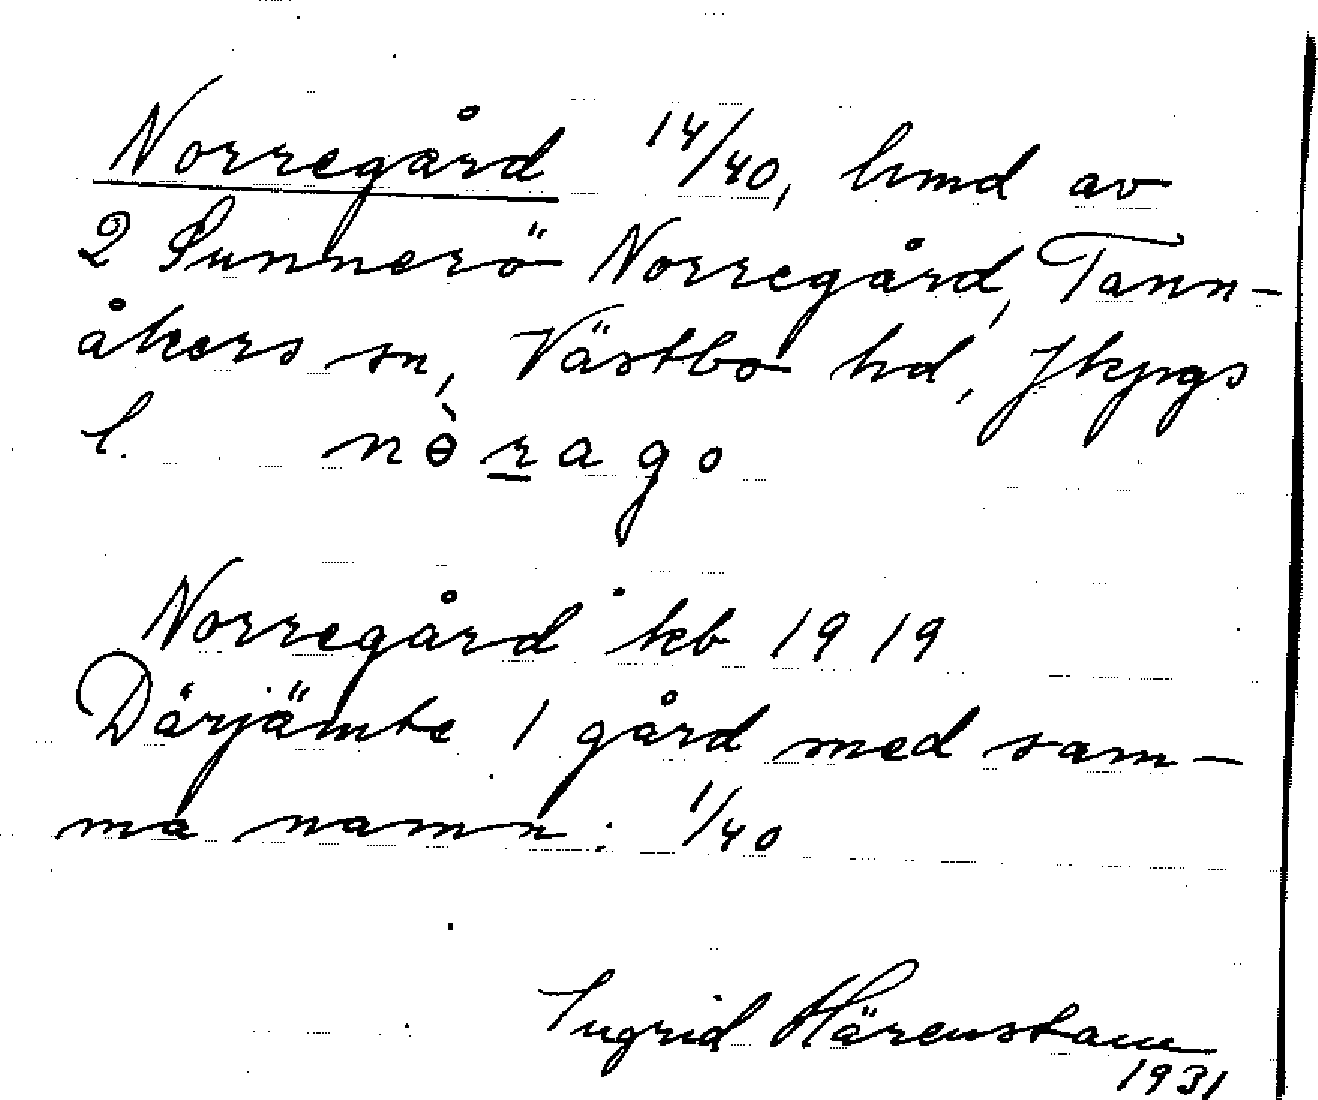 Norregård 14/40, hmd av
2 Sunnerö Norregård, Tann-
åkers sn, Västbo hd, Jkpgs
l. nè̱rago
Norregård kb 1919
Därjämte 1 gård med sam-
ma namn: 1/40
Ingrid Härenstam
1931